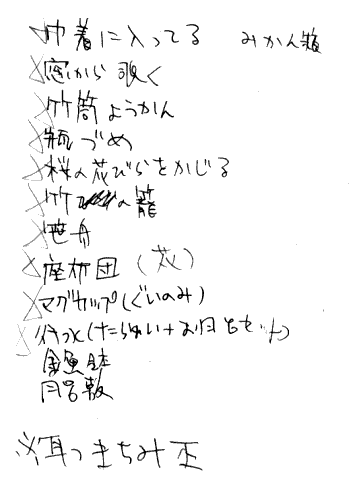 巾着に入ってる みかん類
窓から覗く
竹筒ようかん
瓶づめ
桜の花びらをかじる
竹の籠
笹舟
座布団(
マグカップ(ぐいのみ)
行水(たらい+お月セット)
金魚鉢
回覧板
※耳つきちみ